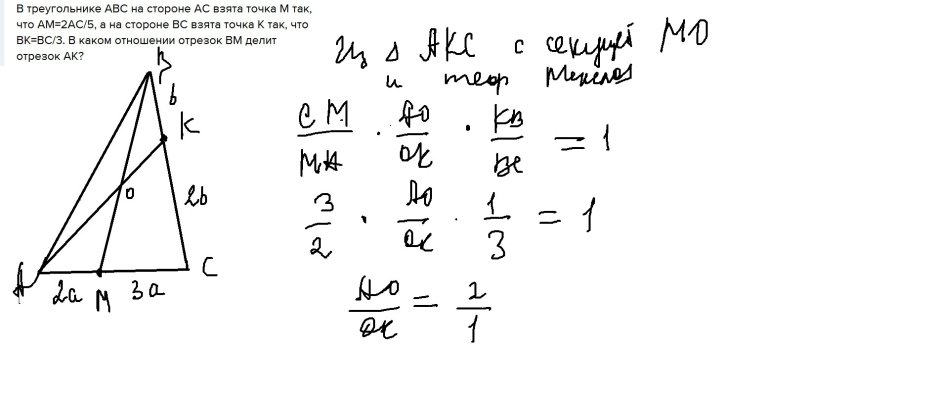 В треугольнике ABC на стороне AC взята точка M так,
что AM=2AC/5, а на стороне BC взята точка K так, что
BK=BC/3. В каком отношении отрезок BM делит
отрезок AK?
Из Δ AKC с секущей MO
и теор Менелая
B
b
K
O
2b
A
2a
M
3a
C
CM/MA · AO/OK · KB/BC = 1
3/2 · AO/OK · 1/3 = 1
AO/OK = 2/1